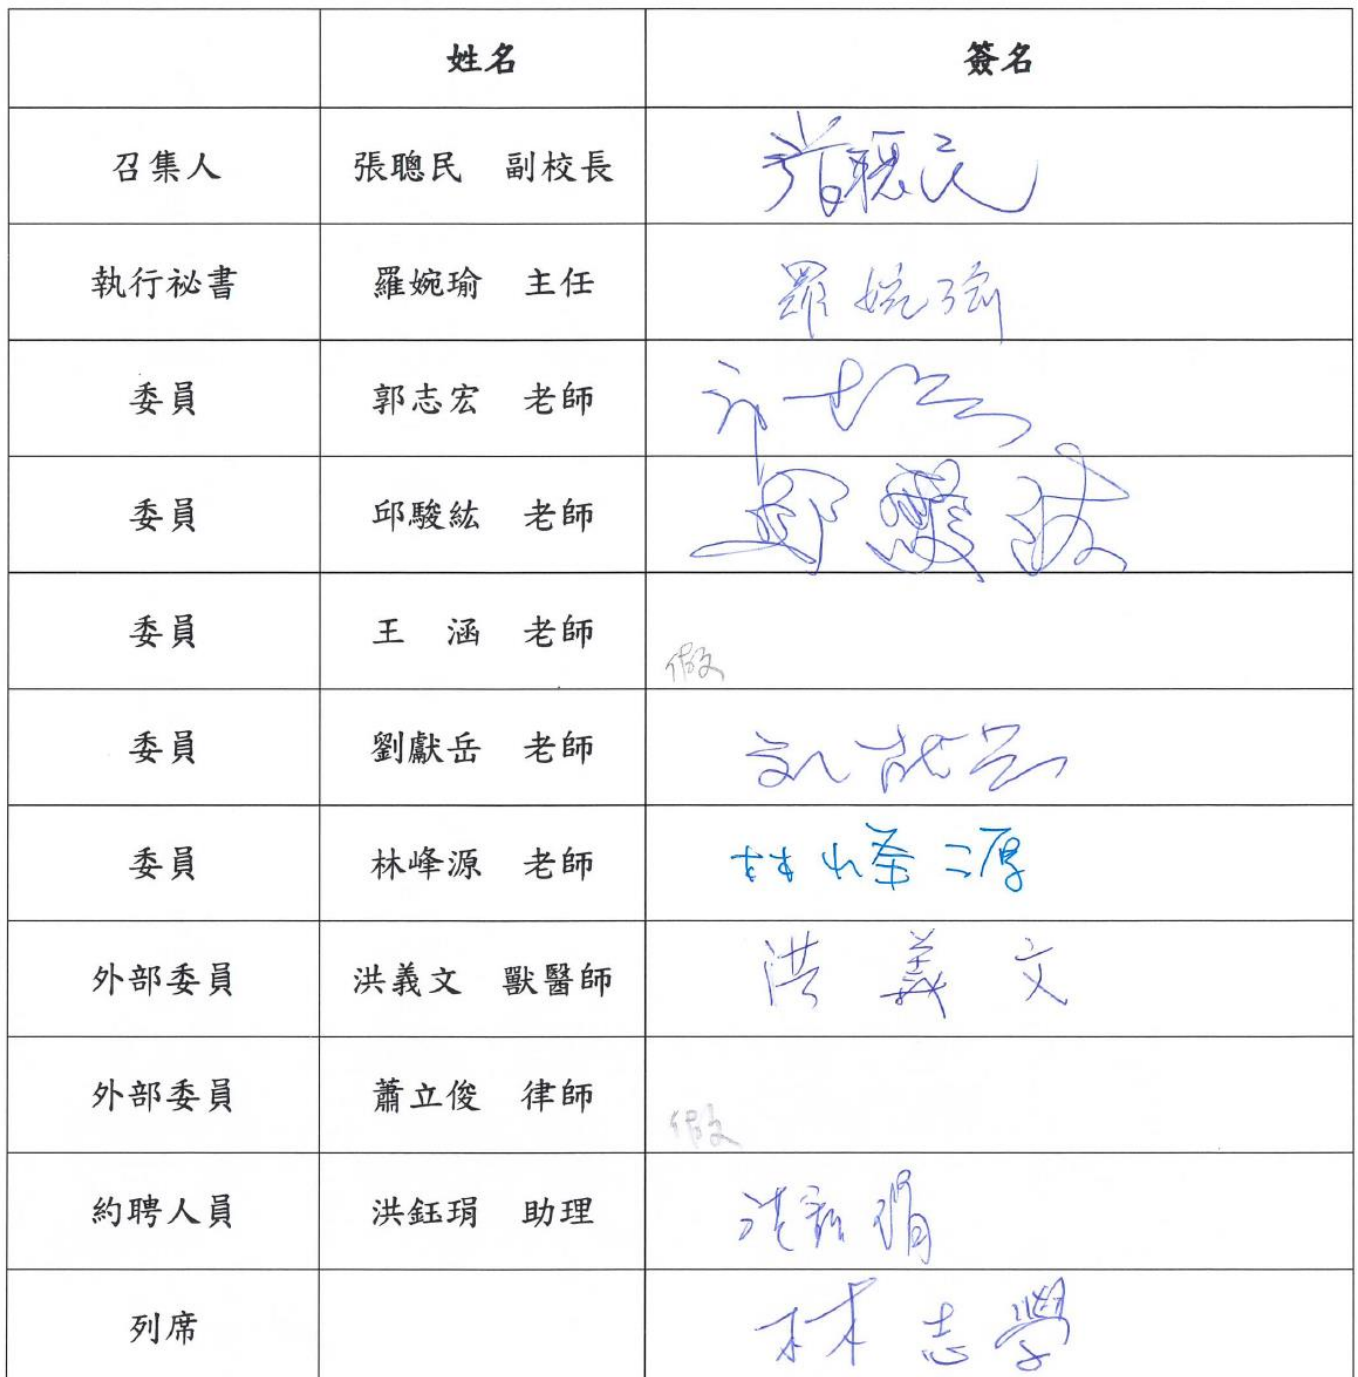 姓名 簽名
召集人 張聰民 副校長 張聰民
執行祕書 羅婉瑜 主任 羅婉瑜
委員 郭志宏 老師
委員 邱駿紘 老師 邱駿紘
委員 王 涵 老師
委員 劉獻岳 老師
委員 林峰源 老師 林峯源
外部委員 洪義文 獸醫師 洪義文
外部委員 蕭立俊 律師
約聘人員 洪鈺琄 助理 洪鈺琄
列席 林志學